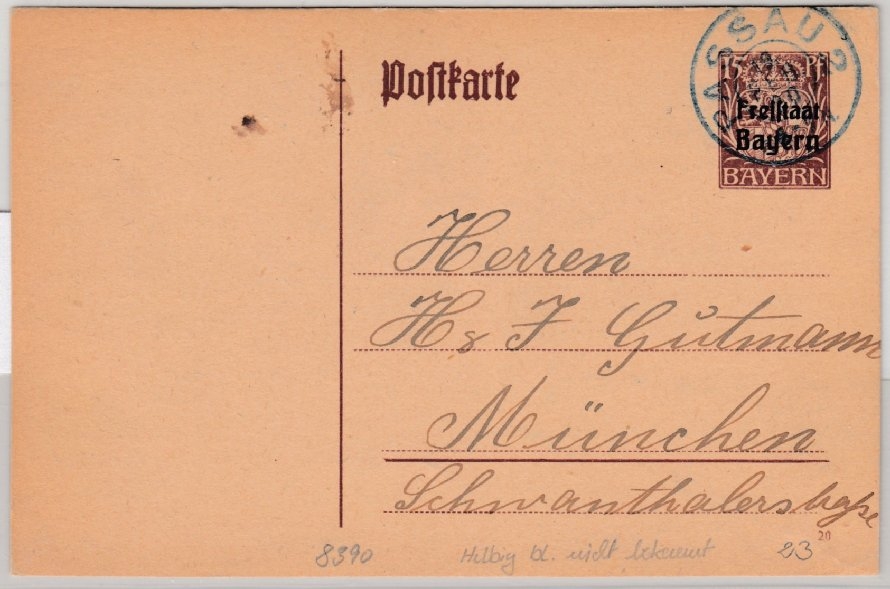 PASSAU 2
Postkarte
15 Pf
Freistaat
Bayern
BAYERN
Herren
Hs F Gutmann
München
Schwanthalerstraße
20
8390 Helbig bl. nicht bekannt 23